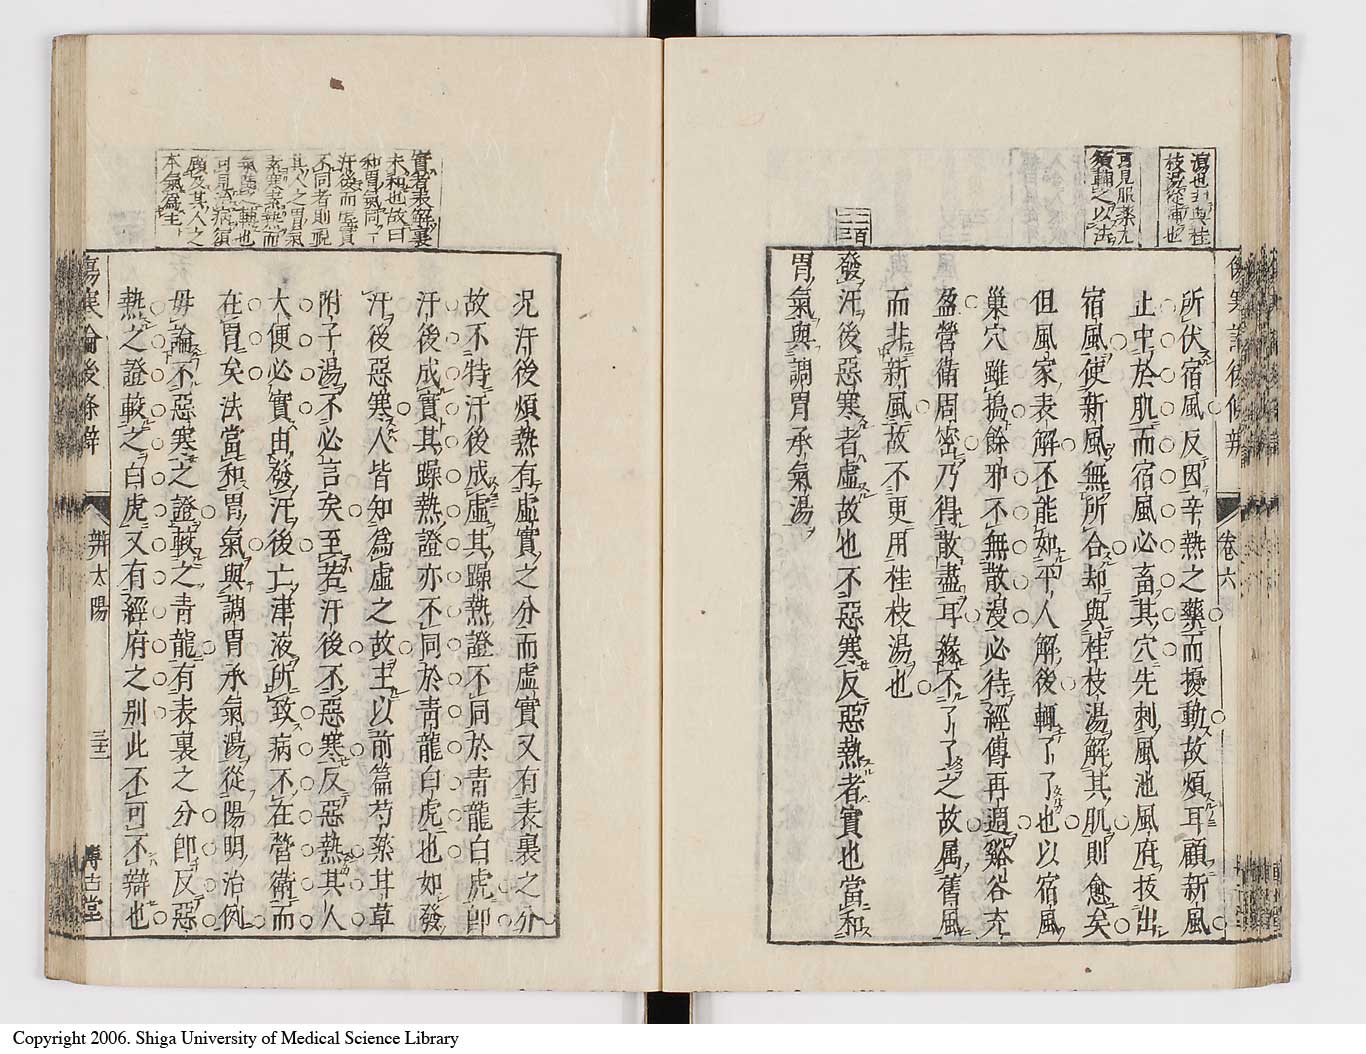 瀉也且與桂
枝湯從溥也
可見服藥尤
須輔之以法
所伏宿風反因辛熱之藥而擾動故煩耳顧新風
止中於肌而宿風必畜其穴先刺風池風府拔出
宿風使新風無所合却與桂枝湯解其肌則愈矣
但風家表解不能如平人解後輒了了也以宿風
巢穴雖搗餘邪不無散漫必待經傳再過谿谷充
盈營衛周密乃得散盡耳緣不了了之故屬舊風
而非新風故不更用桂枝湯也
二百
二三
發汗後惡寒者虛故也不惡寒反惡熱者實也當和
胃氣與調胃承氣湯
卷六
實者表解裏
未和也故曰
和胃氣同一
汗後而虛實
不同者則視
其人之胃氣
素寒素熱而
氣隨之轉也
可見治病須
顧及其人之
本氣為主
況汗後煩熱有虛實之分而虛實又有表裏之分
故不特汗後成虛其躁熱證不同於青龍白虎卽
汗後成實其躁熱證亦不同於青龍白虎也如發
汗後惡寒人皆知為虛之故主以前篇芍藥甘草
附子湯不必言矣至若汗後不惡寒反惡熱其人
大便必實由發汗後亡津液所致病不在營衛而
在胃矣法當和胃氣與調胃承氣湯從陽明治例
毋論不惡寒之證較之青龍有表裏之分卽反惡
熱之證較之白虎又有經府之別此不可不辯也
傷寒論後條辨
辨太陽
三十二
博古堂
Copyright 2006. Shiga University of Medical Science Library